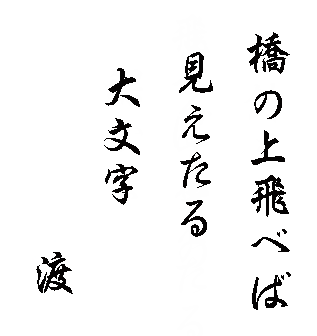 橋の上飛べば
見えたる
大文字
渡